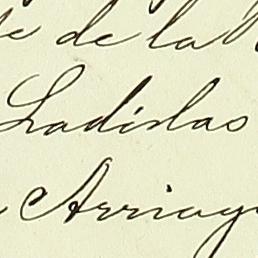 de la
Ladislas
Arriag